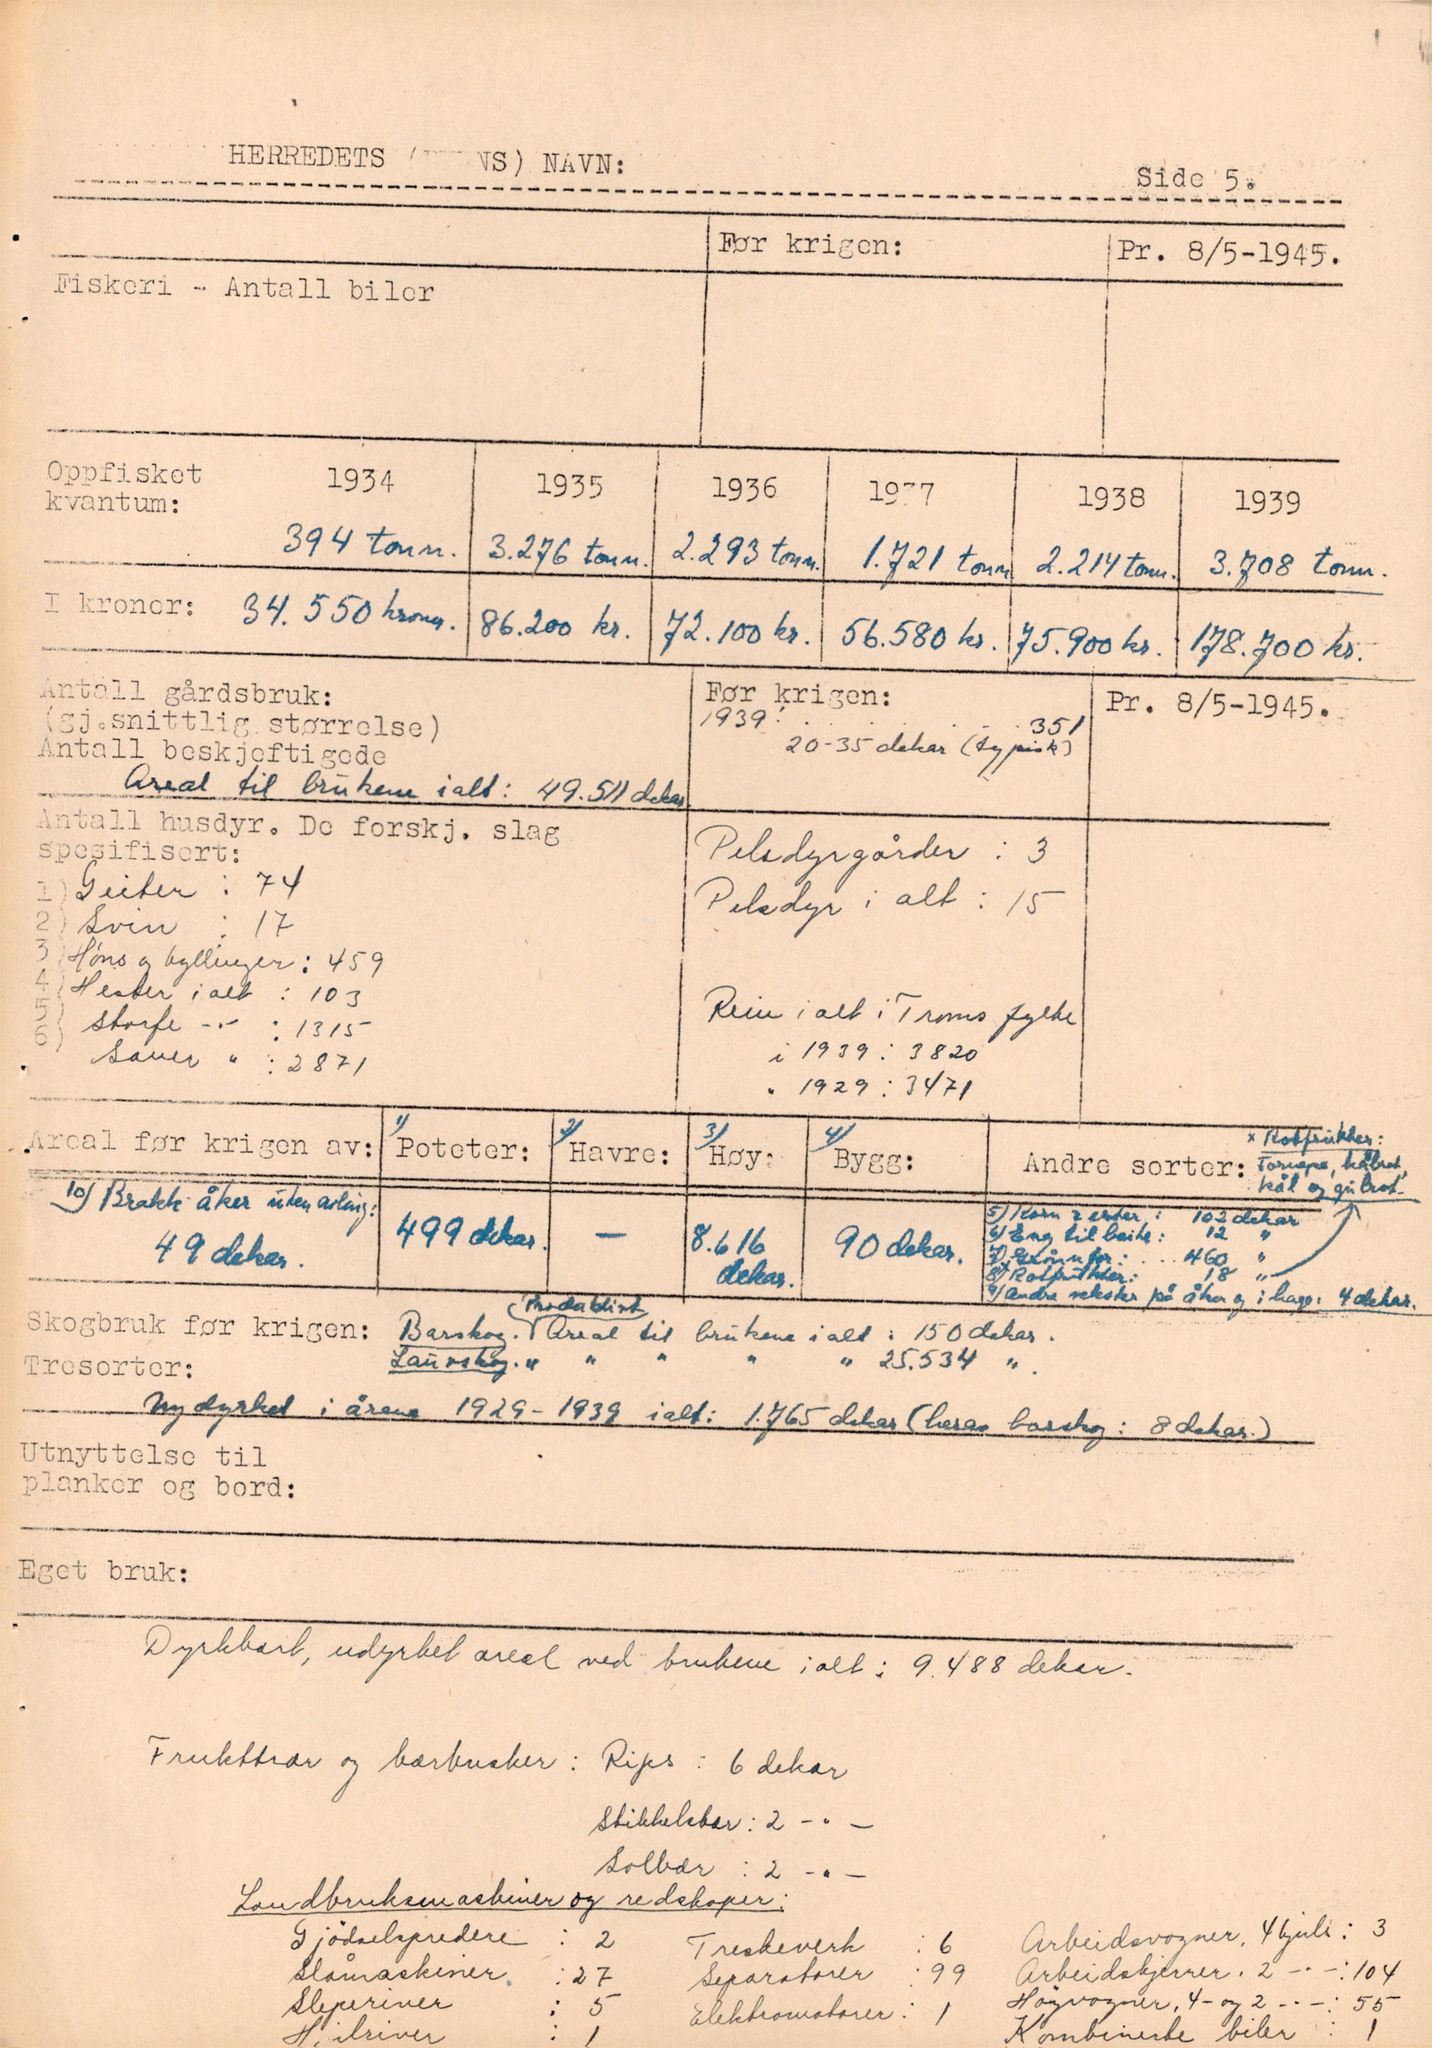 HERREDETS ( NS) NAVN:
Side 5.
Før krigen: Pr. 8/5-1945.
Fiskeri - Antall biler
Oppfisket 1934 1935 1936 19 7 1938 1939
kvantum:
394 tonn. 3.276 tonn. 2.293 tonn. 1.721 tonn 2.214 tonn. 3.708 tonn.
I kroner: 34.550 kroner. 86.200 kr. 72.100 kr. 56.580 kr. 75.900 kr. 178.700 kr.
Antall gårdsbruk: Før krigen: Pr. 8/5-1945.
(gj.snittlig størrelse) 1939: 351
Antall beskjeftigede 20-35 dekar (typisk)
Areal til brukene ialt: 49.511 dekar
Antall husdyr. De forskj. slag
spesifisert:
1) Geiter : 74
2) Svin : 17
3) Höns og kyllinger : 459
4) Hester i alt : 103
5) Storfe -"- : 1315
6) Sauer " : 2871
Pelsdyrgårder : 3
Pelsdyr i alt : 15
Rein i alt i Troms fylke
i 1939 : 3820
" 1929 : 3471
Areal før krigen av: 1/ Poteter: 2/ Havre: 3/ Høy: 4/ Bygg: Andre sorter:
x Rotfrukter:
Turnips, kålrot,
kål og gulrot
10) Brakk åker uten avling:
49 dekar.
499 dekar.
—
8.616
dekar.
90 dekar.
5) Korn erter : 102 dekar
6) Eng til beite : 12 "
7) Grönnfor : ... 460 "
8) Rotfrukter : 18 "
9) Andre vekster på åker og i hage : 4 dekar.
Skogbruk før krigen: Barskog. (Produktivt) Areal til brukene i alt : 150 dekar.
Tresorter: Lauvskog. " " " " " 25.534 ".
Nydyrket i årene 1929-1939 ialt: 1.765 dekar (herav barskog : 8 dekar.)
Utnyttelse til
planker og bord:
Eget bruk:
Dyrkbart, udyrket areal ved brukene i alt : 9.488 dekar.
Frukttrær og bærbusker : Rips : 6 dekar
Stikkelsbær : 2 -"-
Solbær : 2 -"-
Landbruksmaskiner og redskaper:
Gjödselspredere : 2 Treskeverk : 6 Arbeidsvogner, 4 hjuls : 3
Slåmaskiner : 27 Separatorer : 99 Arbeidskjerrer, 2 -"- : 104
Sleperiver : 5 Elektromotorer : 1 Höyvogner, 4- og 2 -"- : 55
Hjulriver : 1 Kombinerte biler : 1